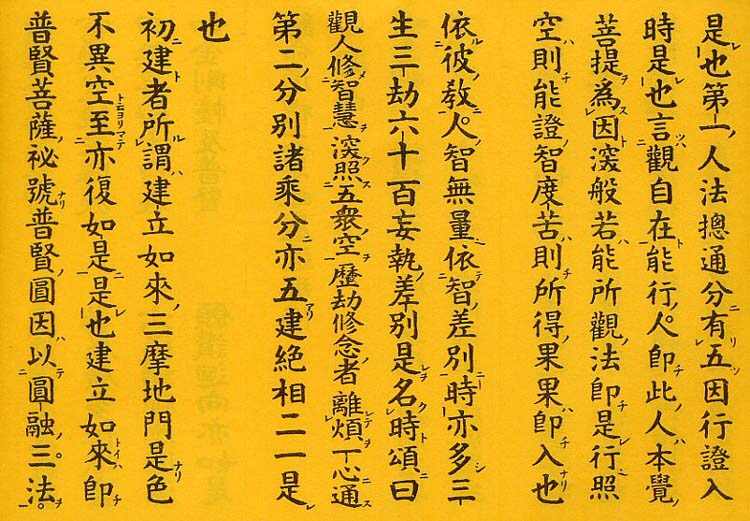 是也第一人法摠通分有五因行證入
時是也言觀自在能行人即此人本覺
菩提為因深般若能所觀法即是行照
空則能證智度苦則所得果果即入也
依彼教人智無量依智差別時亦多三
生三劫六十百妄執差別是名時頌曰
觀人修智慧深照五衆空歷劫修念者離煩一心通
第二分別諸乘分亦五建絶相二一是
也
初建者所謂建立如來三摩地門是色
不異空至亦復如是是也建立如來即
普賢菩薩祕號普賢圓因以圓融三法